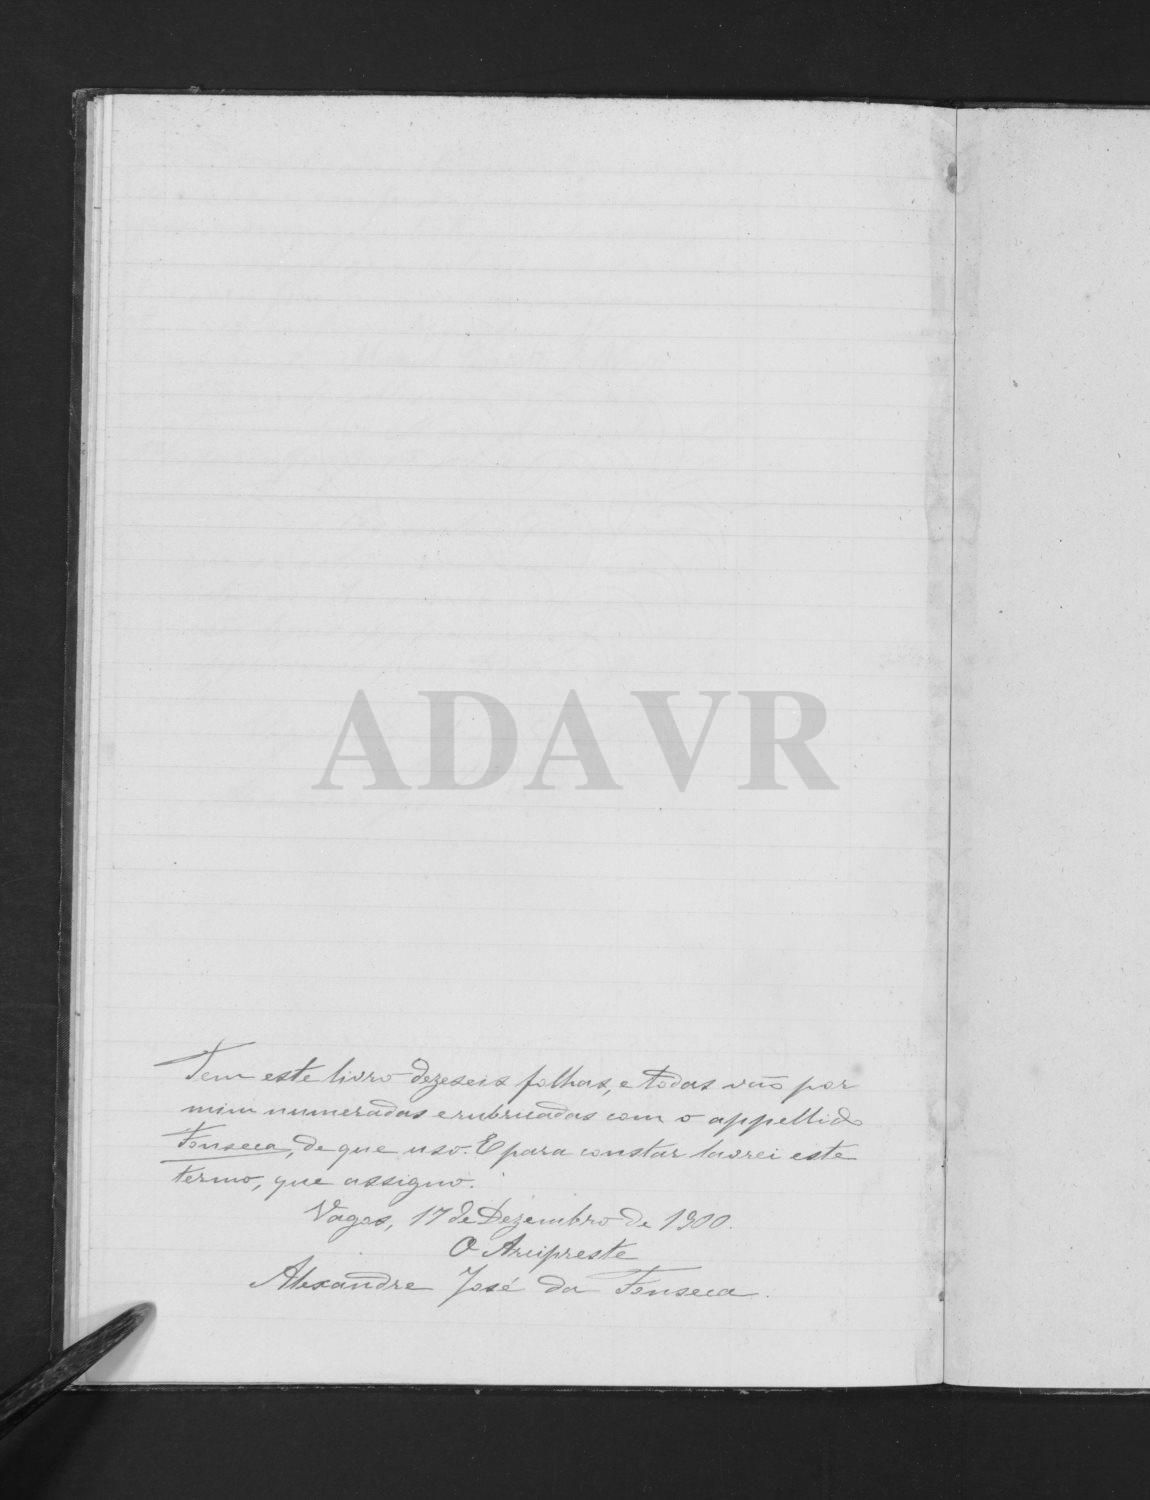 ADAVR
Tem este livro dezeseis folhas, e todas vão por
mim numeradas e rubricadas com o appellido
Fonseca, de que uso. E para constar lavrei este
termo, que assigno.
Vagos, 17 de Dezembro de 1900.
O Arcipreste
Alexandre José da Fonseca.